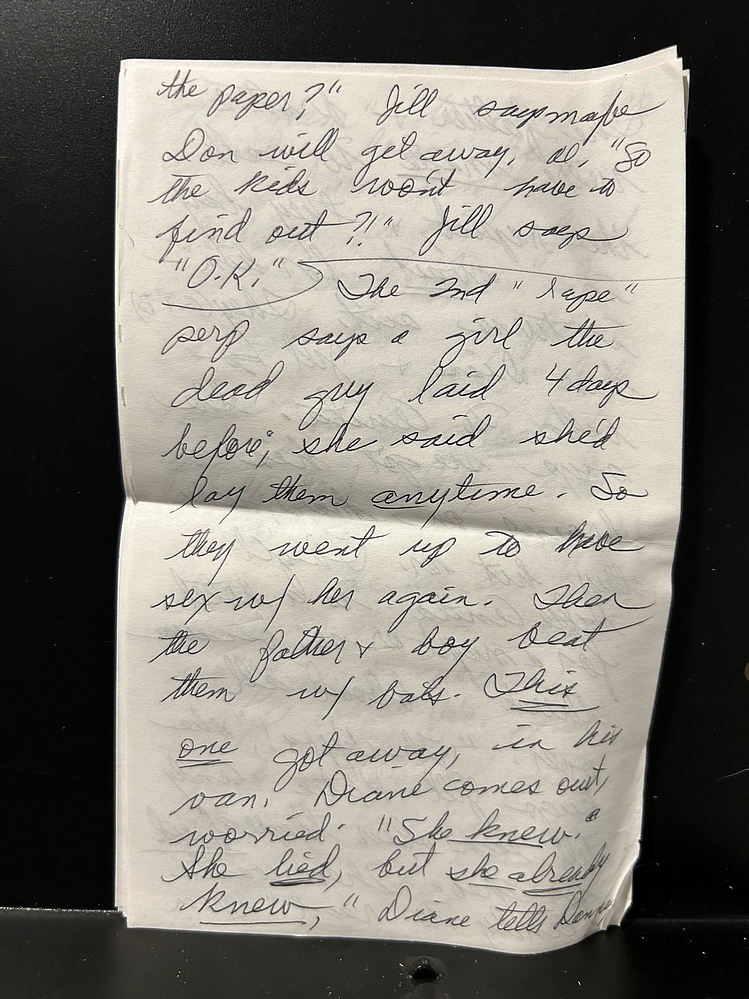 the paper?" Jill says maybe
Don will get away, Al, "So
the kids won't have to
find out?!" Jill says
"O.K." The 2nd "rape"
perp says a girl the
dead guy laid 4 days
before; she said she'd
lay them anytime. So
they went up to have
sex w/ her again. Then
the father & boy beat
them w/ bats. This
one got away, in his
van. Diane comes out,
worried. "She knew."
She lied, but she already
knew," Diane tells Donna